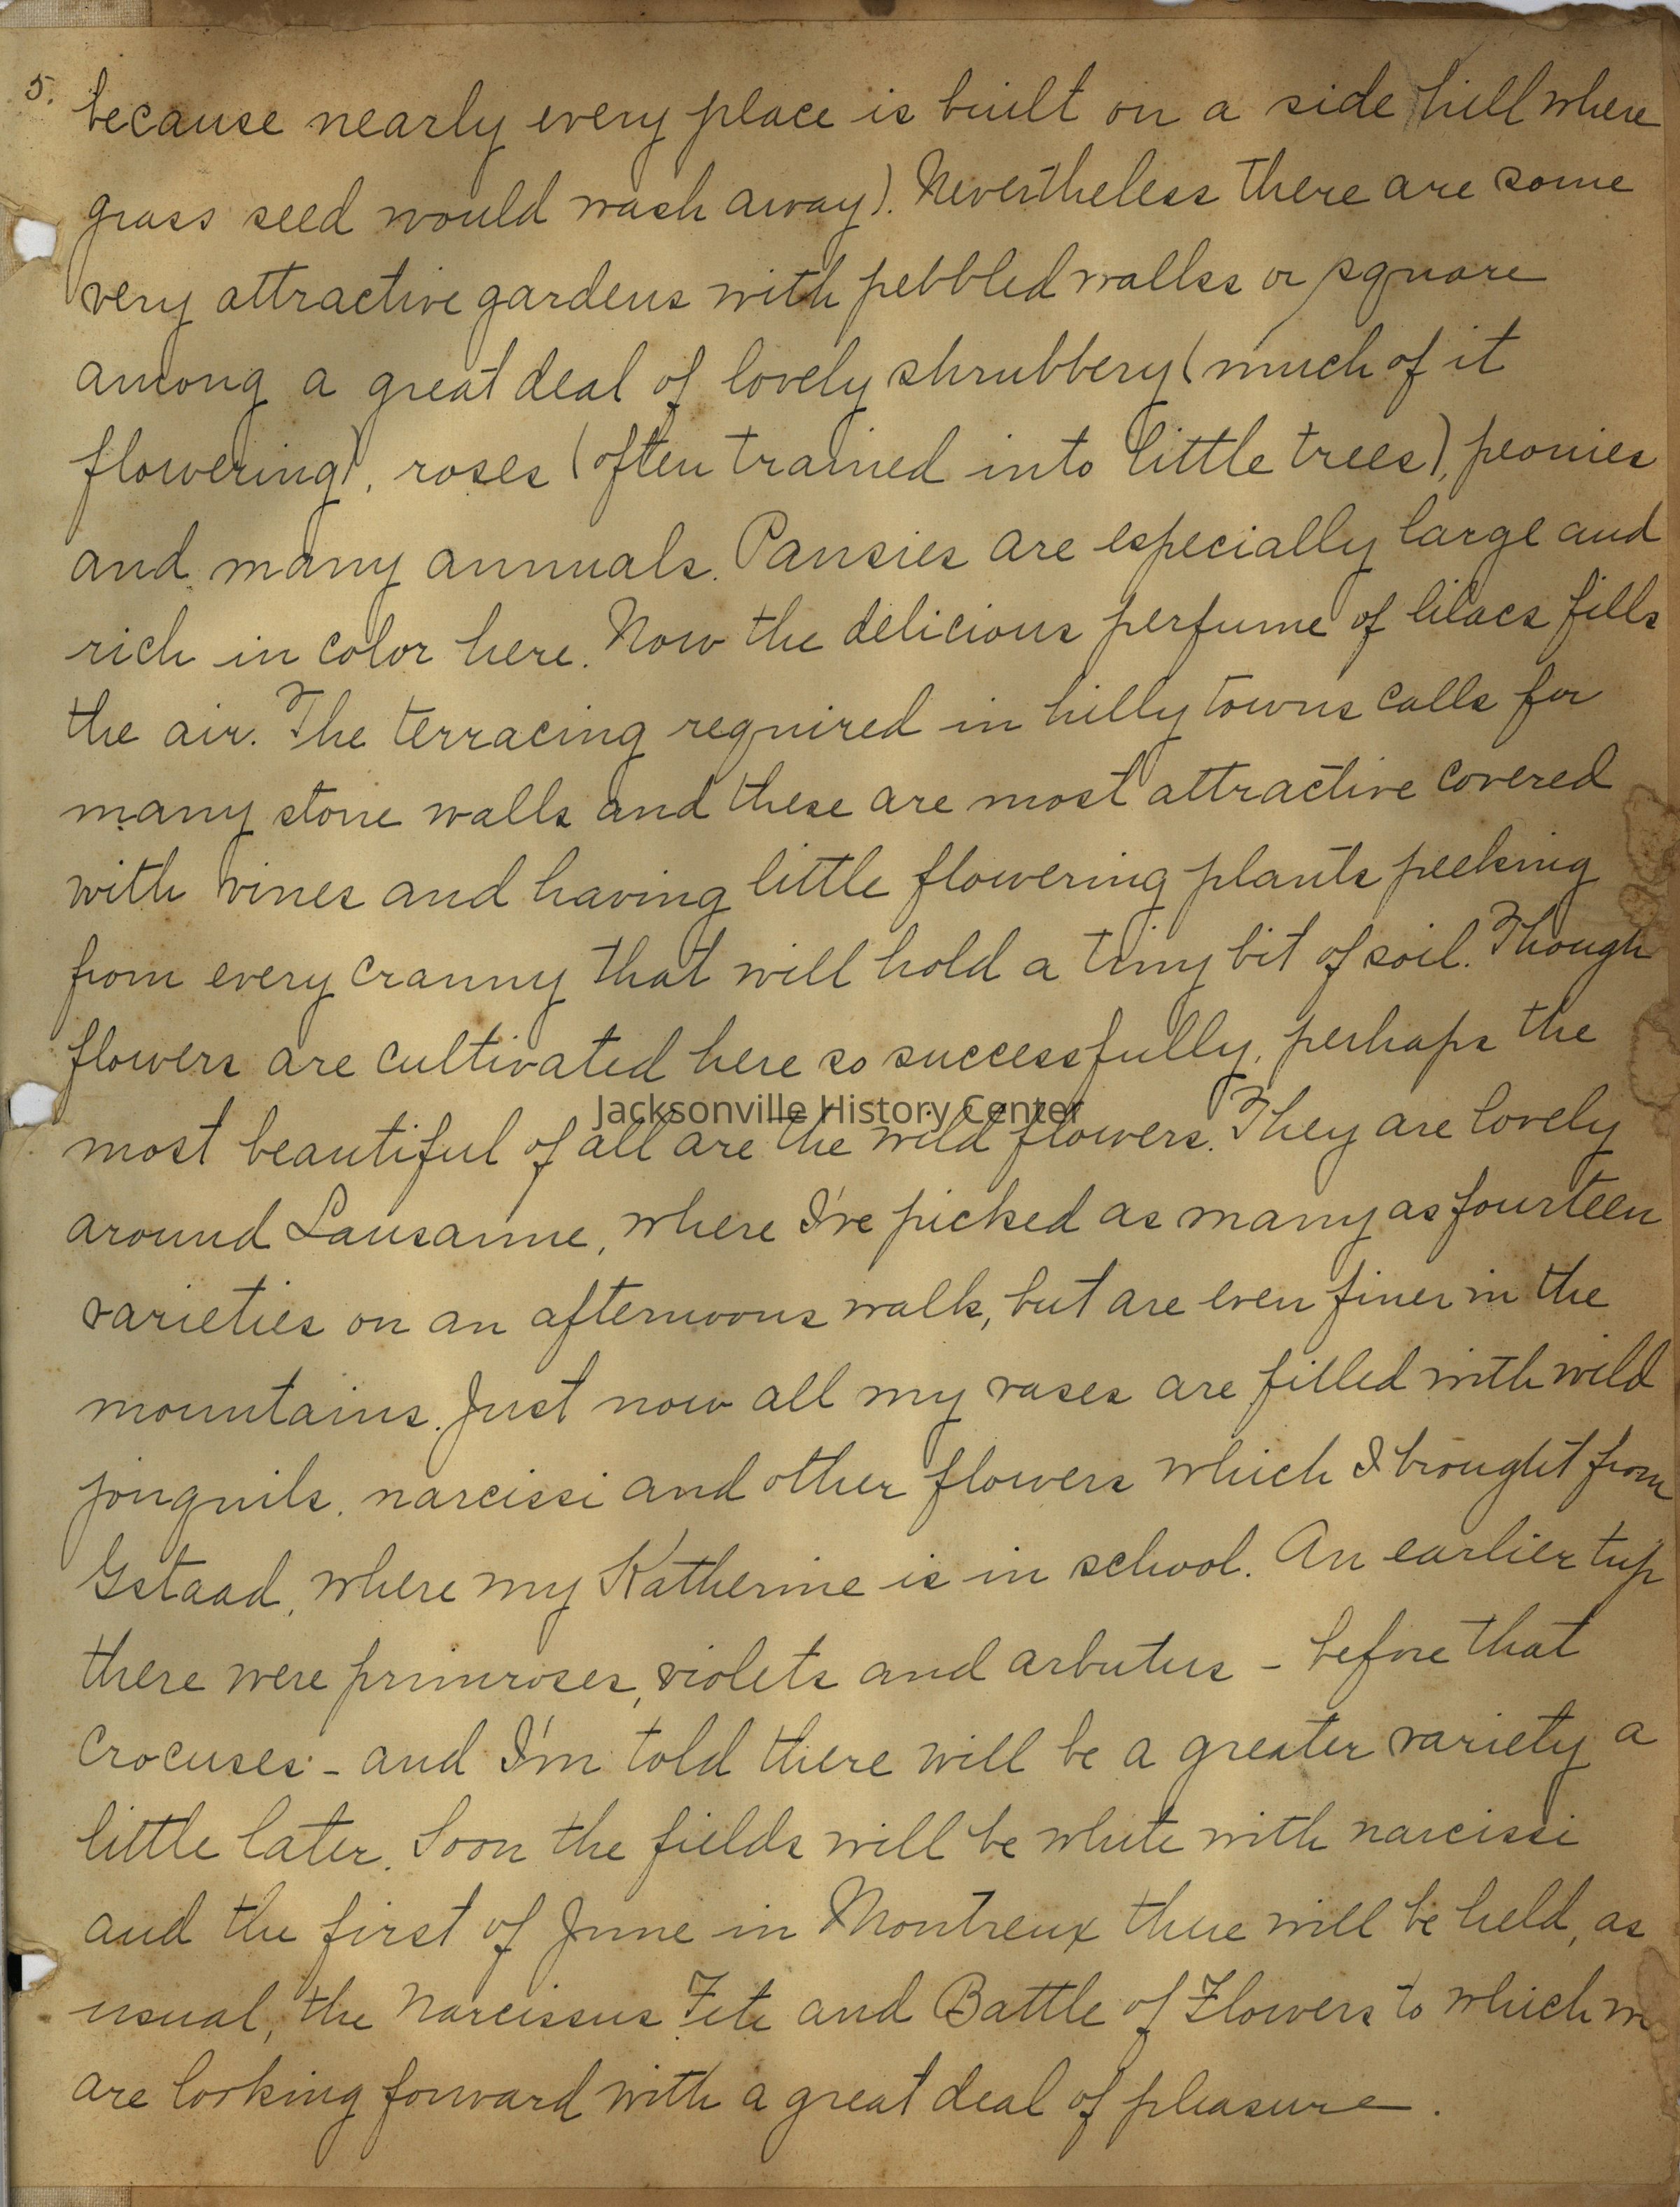 5. because nearly every place is built on a side hill where
grass seed would wash away). Nevertheless there are some
very attractive gardens with pebbled walks or square
among a great deal of lovely shrubbery (much of it
flowering), roses (often trained into little trees), peonies
and many annuals. Pansies are especially large and
rich in color here. Now the delicious perfume of lilacs fills
the air. The terracing required in hilly towns calls for
many stone walls and these are most attractive covered
with vines and having little flowering plants peeking
from every cranny that will hold a tiny bit of soil. Though
flowers are cultivated here so successfully, perhaps the
Jacksonville History Center
most beautiful of all are the wild flowers. They are lovely
around Lausanne, where I've picked as many as fourteen
varieties on an afternoons walk, but are even finer in the
mountains. Just now all my vases are filled with wild
jonquils, narcissi and other flowers which I brought from
Gstaad, where my Katherine is in school. An earlier trip
there were primroses, violets and arbutus - before that
crocuses - and I'm told there will be a greater variety a
little later. Soon the fields will be white with narcissi
and the first of June in Montreux there will be held, as
usual, the Narcissus Fete and Battle of Flowers to which we
are looking forward with a great deal of pleasure.